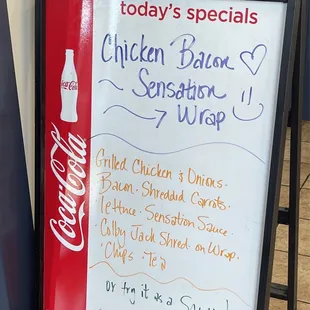 today's specials
Chicken Bacon
Sensation
Wrap
Coca-Cola
Grilled Chicken & Onions.
Bacon. Shredded Carrots.
lettuce. Sensation Sauce.
Colby Jack Shred. on Wrap.
Chips. Tea
or try it as a